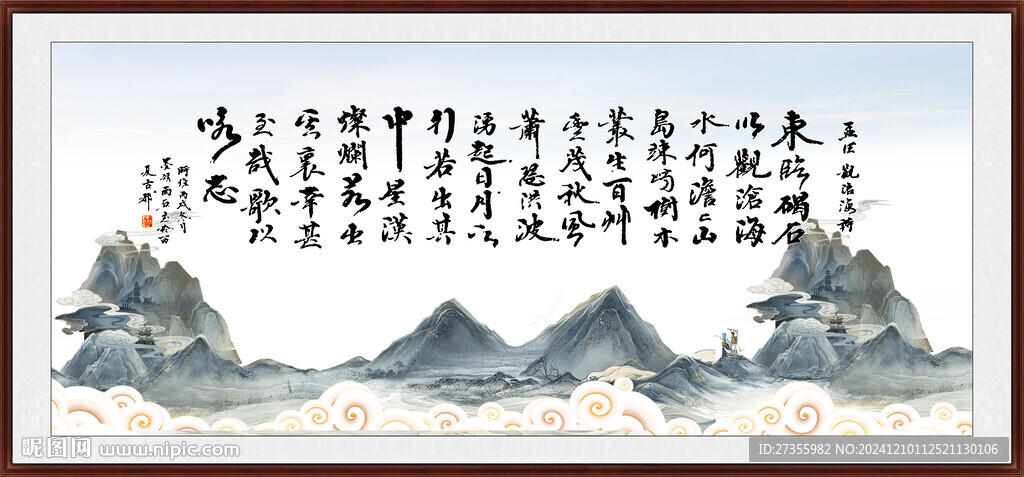 孟德觀滄海詩
東臨碣石
以觀滄海
水何澹〻山
島竦峙樹木
叢生百艸
豐茂秋風
蕭瑟洪波
湧起日月之
行若出其
中星漢
燦爛若出
其裏幸甚
至哉歌以
咏志
丙戌冬月
夏古都
昵图网 www.nipic.com
ID:27355982 NO:20241210112521130106